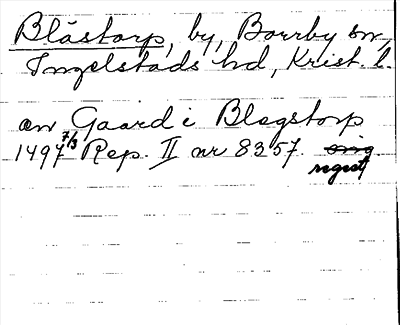 Blåstorp, by, Borrby sn,
Ingelstads hd, Krist. l.
en Gaard i Blagstorp
1497 7/3 Rep. II nr 8357. orig
regest